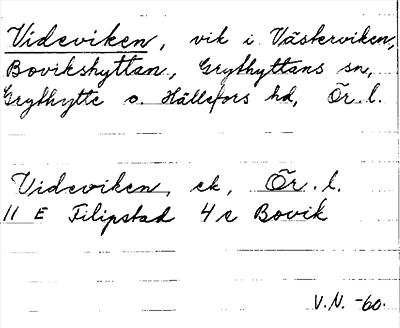 Videviken, vik i Västerviken,
Bovikshyttan, Grythyttans sn,
Grythytte o. Hällefors hd, Ör. l.
Videviken, ek, Ör. l.
11 E Filipstad 4 c Bovik
V.N. -60.